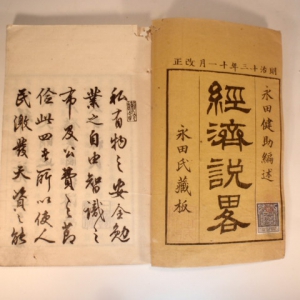 明治十三年十一月改正
永田健助編述
經濟說畧
永田氏藏板
私有物之安全勉
業之自由智識之
市及公費之節
儉此四者所以使人
民激發天資之能